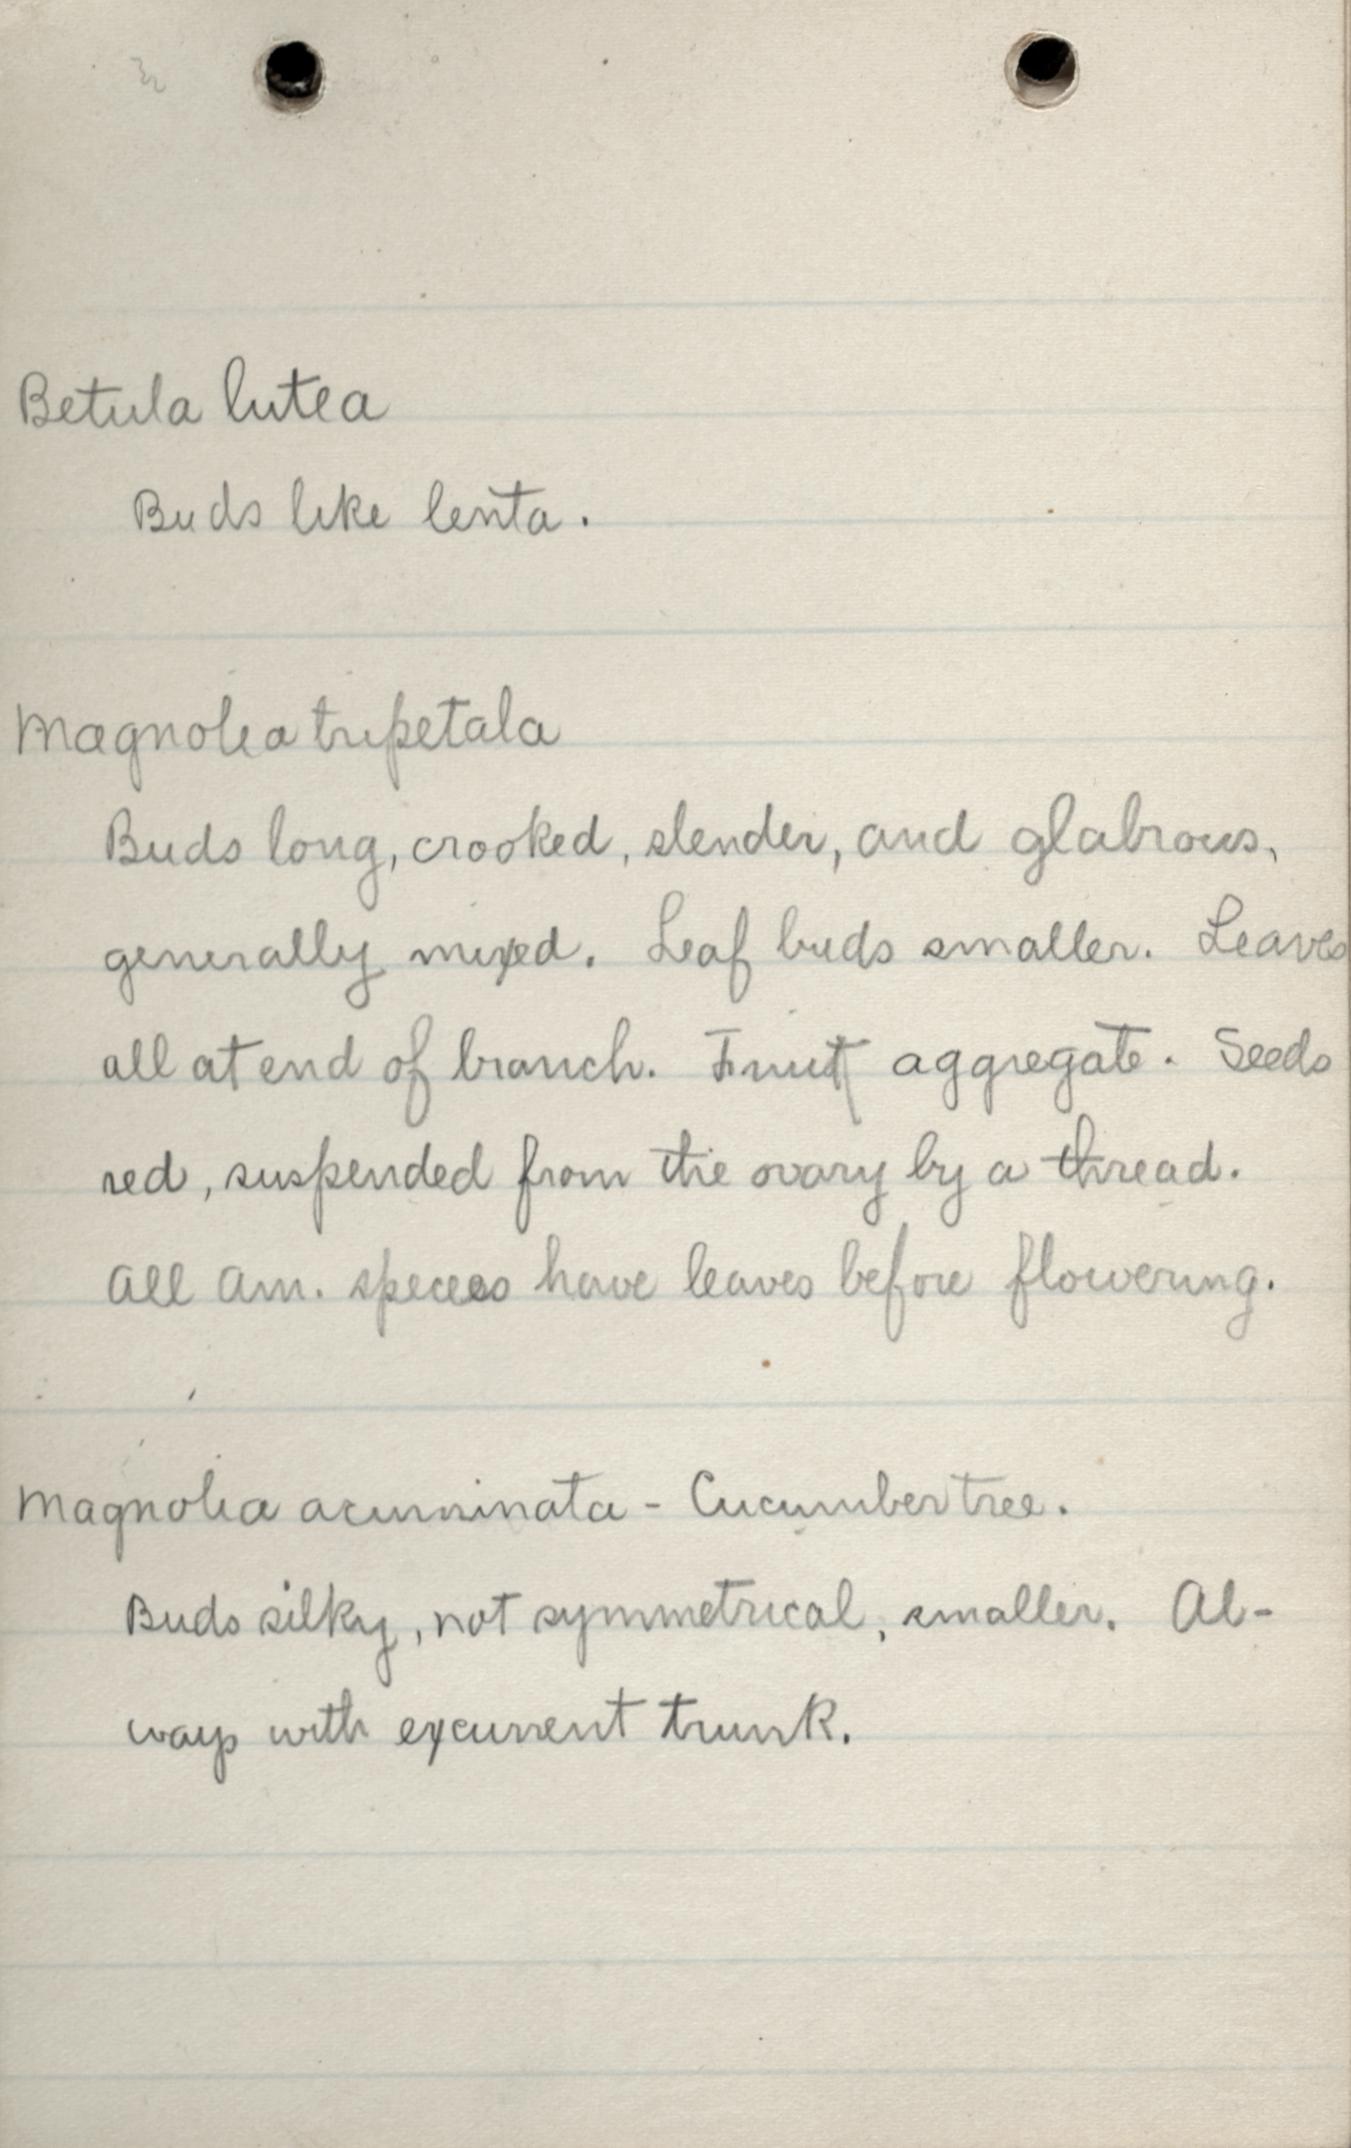 Betula lutea
Buds like lenta.
Magnolia tripetala
Buds long, crooked, slender, and glabrous,
generally mixed. Leaf buds smaller. Leaves
all at end of branch. Fruit aggregate. Seeds
red, suspended from the ovary by a thread.
All Am. species have leaves before flowering.
Magnolia acuminata - Cucumber tree.
Buds silky, not symmetrical, smaller. Al-
ways with excurrent trunk.